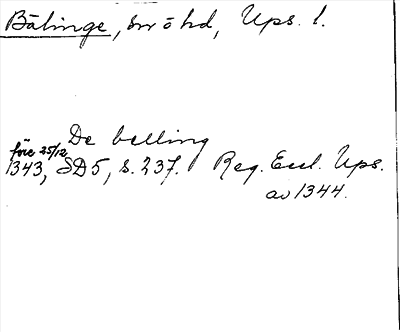 Bälinge, sn o hd, Ups. l.
De belling
före 25/12
1343, SD5, s. 237. Reg. Eccl. Ups.
av 1344.